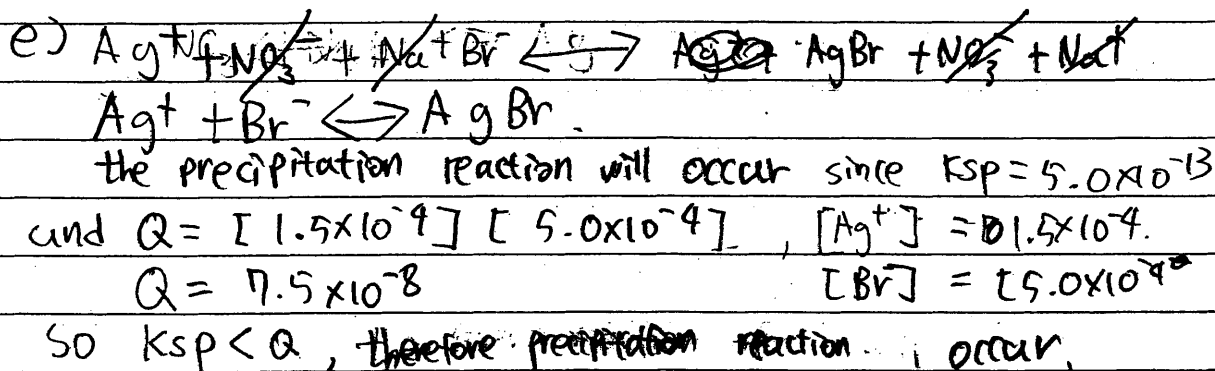 e) Ag⁺ + NO₃⁻ + Na⁺ Br⁻ <—> AgBr + NO₃⁻ + Na⁺
Ag⁺ + Br⁻ <=> AgBr.
the precipitation reaction will occur since Ksp = 5.0×10⁻¹³
and Q = [1.5×10⁻⁴] [5.0×10⁻⁴], [Ag⁺] = 1.5×10⁻⁴.
Q = 7.5×10⁻⁸ [Br⁻] = [5.0×10⁻⁴
So Ksp < Q, therefore precipitation reaction occur.